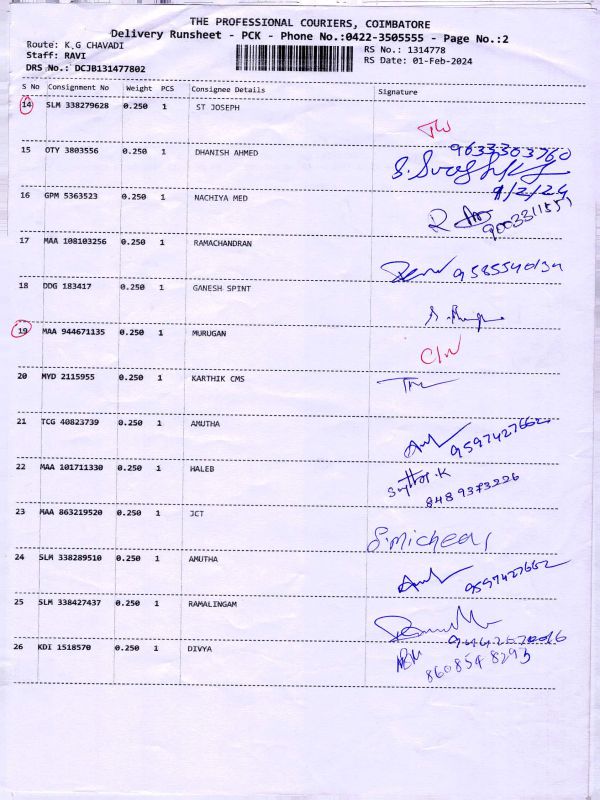 THE PROFESSIONAL COURIERS, COIMBATORE
Delivery Runsheet - PCK - Phone No.:0422-3505555 - Page No.:2
Route: K.G CHAVADI
RS No.: 1314778
Staff: RAVI
RS Date: 01-Feb-2024
DRS No.: DCJB131477802
S No Consignment No Weight PCS Consignee Details Signature
14 SLM 338279628 0.250 1 ST JOSEPH
15 OTY 3803556 0.250 1 DHANISH AHMED
9633303760
1/2/24
16 GPM 5363523 0.250 1 NACHIYA MED
17 MAA 108103256 0.250 1 RAMACHANDRAN
18 DDG 183417 0.250 1 GANESH SPINT
19 MAA 944671135 0.250 1 MURUGAN
20 MYD 2115955 0.250 1 KARTHIK CMS
21 TCG 40823739 0.250 1 AMUTHA
9597427662
22 MAA 101711330 0.250 1 HALEB
8489373226
23 MAA 863219520 0.250 1 JCT
S.Micheal
24 SLM 338289510 0.250 1 AMUTHA
9597427662
25 SLM 338427437 0.250 1 RAMALINGAM
26 KDI 1518570 0.250 1 DIVYA
8608548293